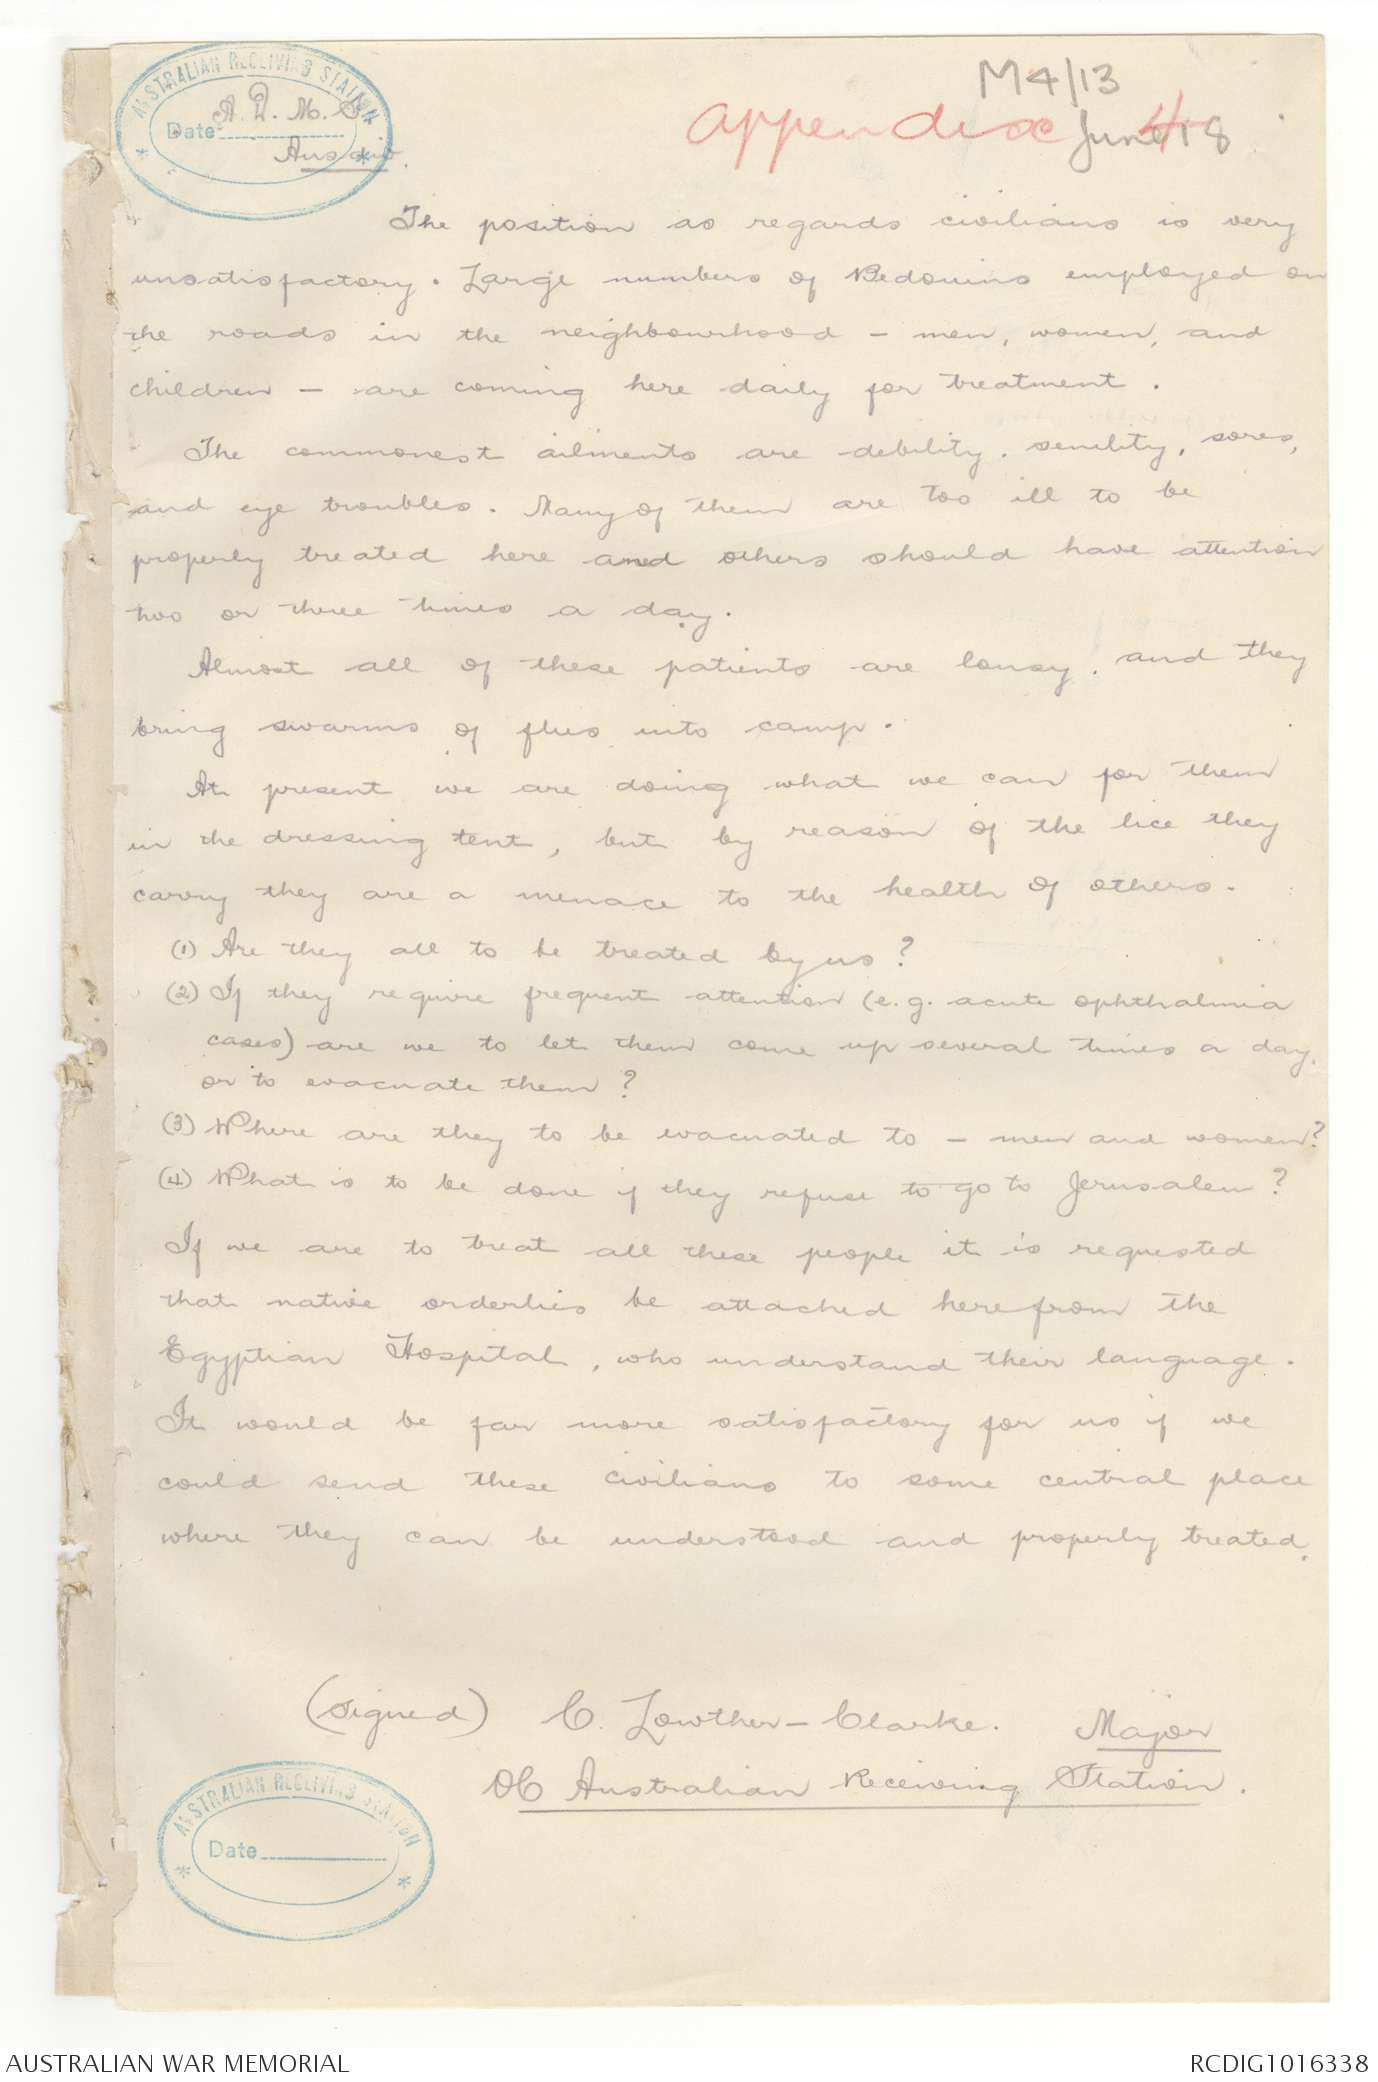 M4/13
Appendix 4 June 18
AUSTRALIAN RECEIVING STATION
Date
A. D. M. S.
The position as regards civilians is very
unsatisfactory. Large numbers of Bedouins employed on
the roads in the neighbourhood - men, women, and
children - are coming here daily for treatment.
The commonest ailments are debility, senility, sores,
and eye troubles. Many of them are too ill to be
properly treated here and others should have attention
two or three times a day.
Almost all of these patients are lousy, and they
bring swarms of flies into camp.
At present we are doing what we can for them
in the dressing tent, but by reason of the lice they
carry they are a menace to the health of others.
(1) Are they all to be treated by us?
(2) If they require frequent attention (e.g. acute ophthalmia
cases) are we to let them come up several times a day,
or to evacuate them?
(3) Where are they to be evacuated to - men and women?
(4) What is to be done if they refuse to go to Jerusalem?
If we are to treat all these people it is requested
that native orderlies be attached here from the
Egyptian Hospital, who understand their language.
It would be far more satisfactory for us if we
could send these civilians to some central place
where they can be understood and properly treated.
(Signed) C. Lowther-Clarke. Major
OC Australian Receiving Station.
AUSTRALIAN RECEIVING STATION
Date
AUSTRALIAN WAR MEMORIAL
RCDIG1016338